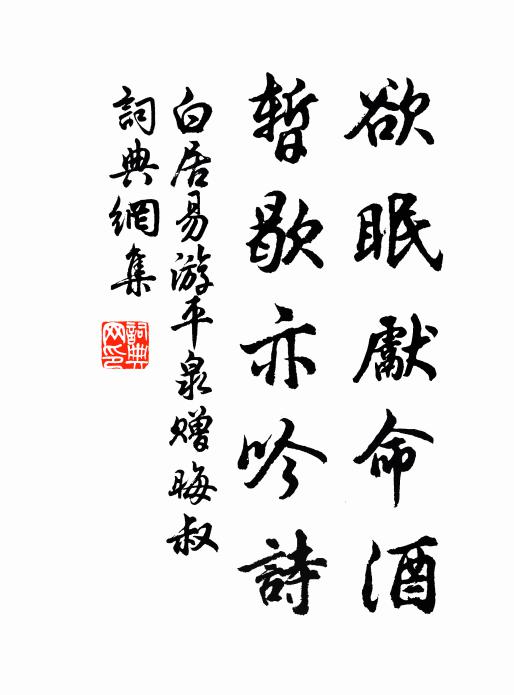 欲眠獻命酒
暫歇亦吟詩
白居易游平泉贈晦叔
詞典網集
詞典
网印